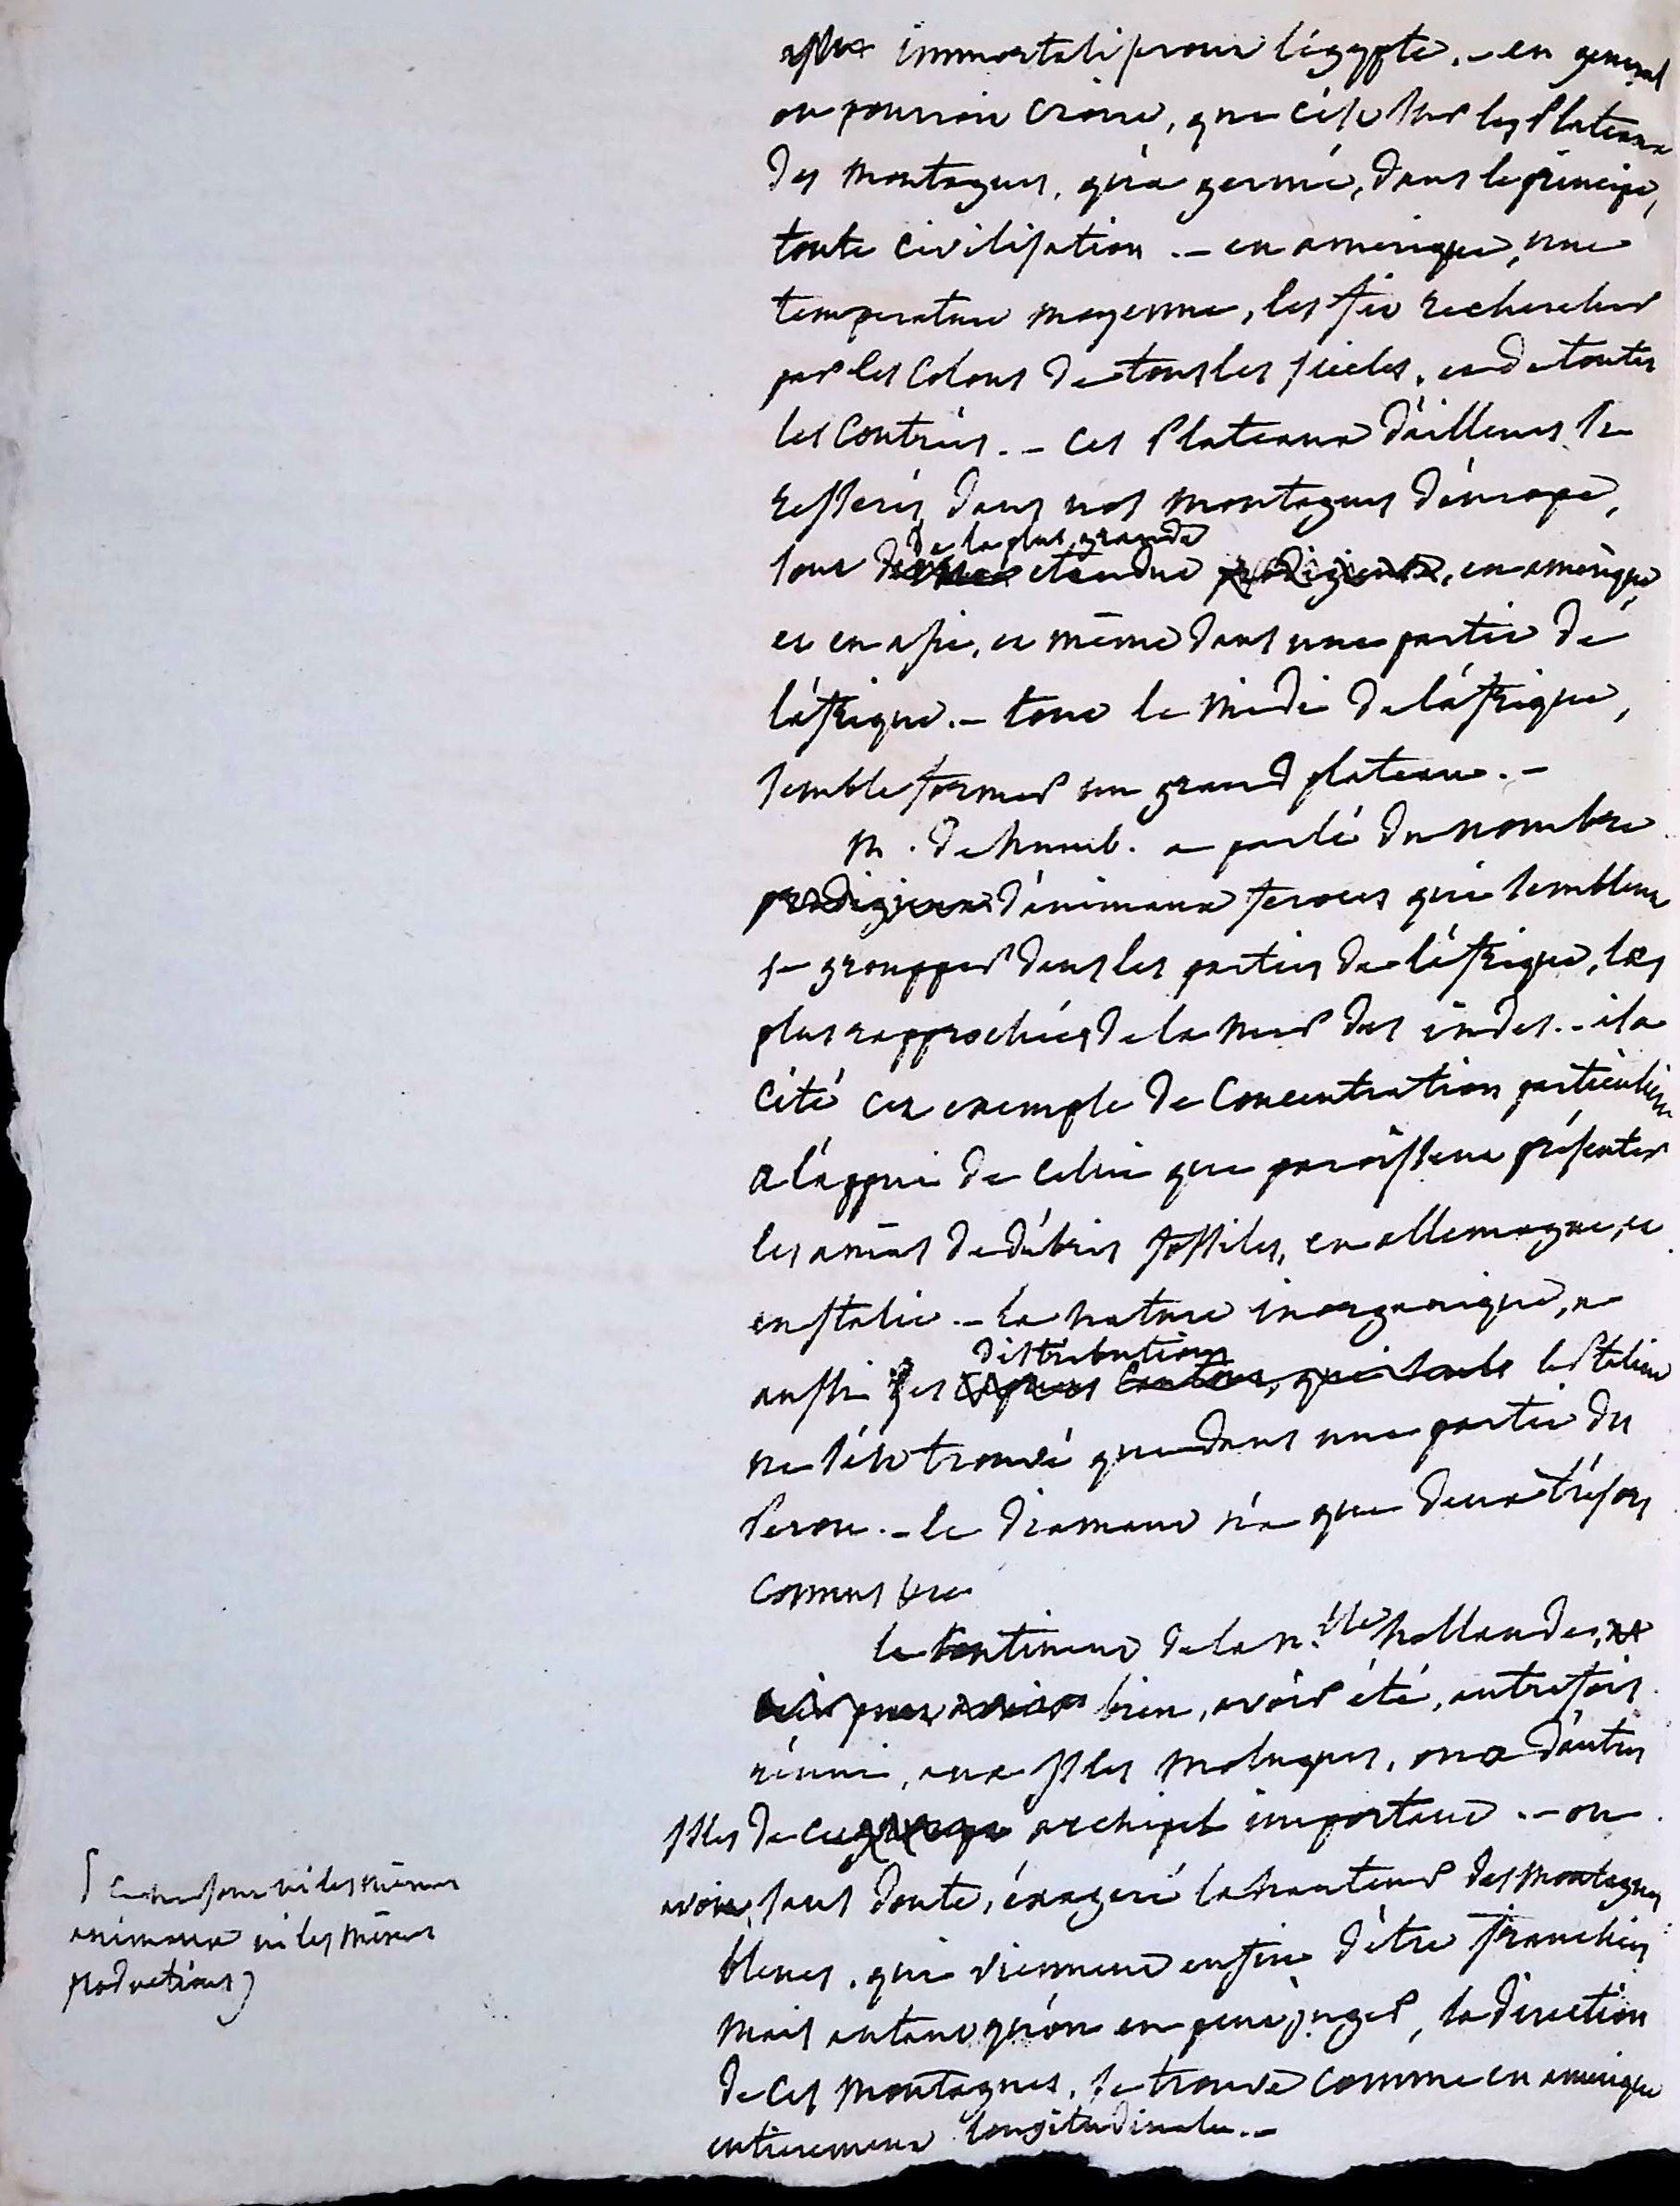 immortali pour l'égypte. - en general
on pourroit croire, que c'est sur les Plateaux
des montagnes, qu'a germé, dans le principe,
toute civilisation. - en amerique, une
temperature moyenne, les fit rechercher
par les Colons de tous les siecles, et de toutes
les Contrées. - Ces Plateaux d'ailleurs si
resserés, dans nos montagnes d'europe,
de la plus grande
sont étendue prodigieuse, en amérique,
et en asie, et même dans une partie de
l'afrique. - tout le midi de l'afrique,
semble former un grand plateau. -
m. de humb. a parlé du nombre
prodigieux d'animaux feroces qui semblent
se groupper dans les parties de l'afrique, les
plus rapprochées de la mer des indes. - il a
cité cet exemple de Concentration particuliere
a l'appui de celui que paroissent présenter
les amas de débris fossiles, en allemagne, et
en italie. - la nature inorganique, a
distributions
aussi ses Cantons, qui seule le Steline
ne s'est trouvé que dans une partie du
Perou. - le diamant n'a que deux trésors
connus
le Continent de la n.lle hollande,
bien, avoir été, autrefois
réuni, aux isles moluques, ou a d'autres
isles de cet archipel important. - on
avoit, sans doute, éxageré la hauteur des montagnes
bleues, qui viennent enfin d'être franchies
mais autant qu'on en peut juger, la direction
de ces montagnes, se trouve comme en amerique
entierement longitudinale. -
( ce ne sont ni les mêmes
animaux ni les mêmes
productions)